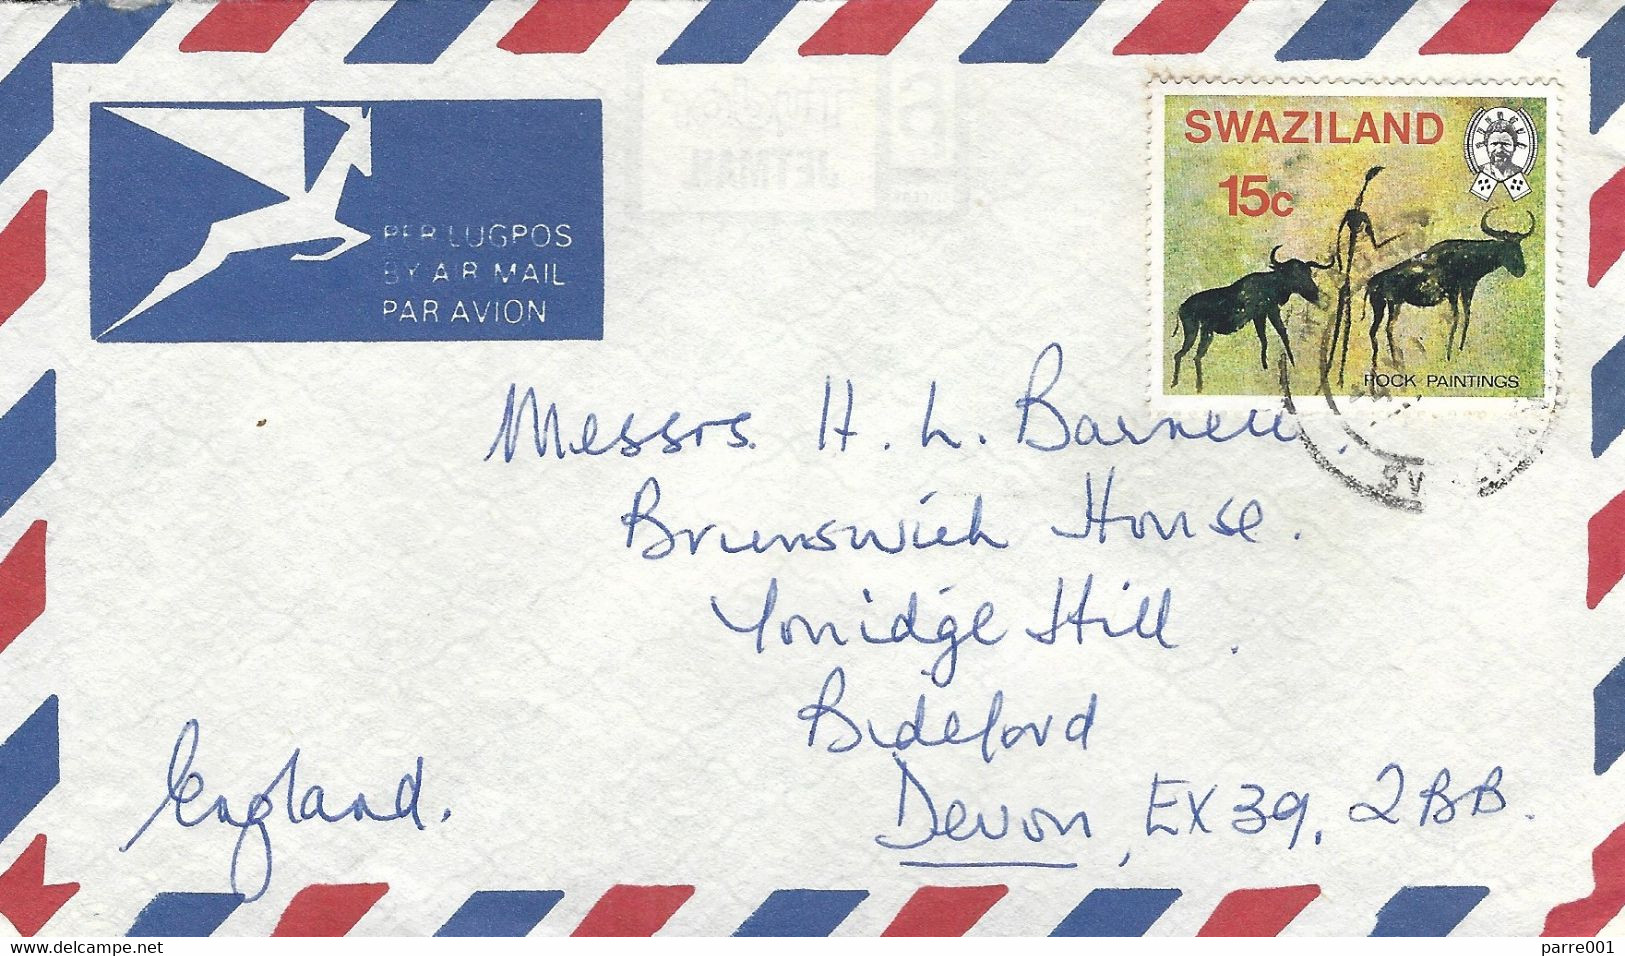 PER LUGPOS
BY AIR MAIL
PAR AVION
SWAZILAND
15c
ROCK PAINTINGS
Messrs. H. L.
Brunswick House.
Hill.
Bideford
Devon, EX39, 2BB.
England.
www.delcampe.net
parre001